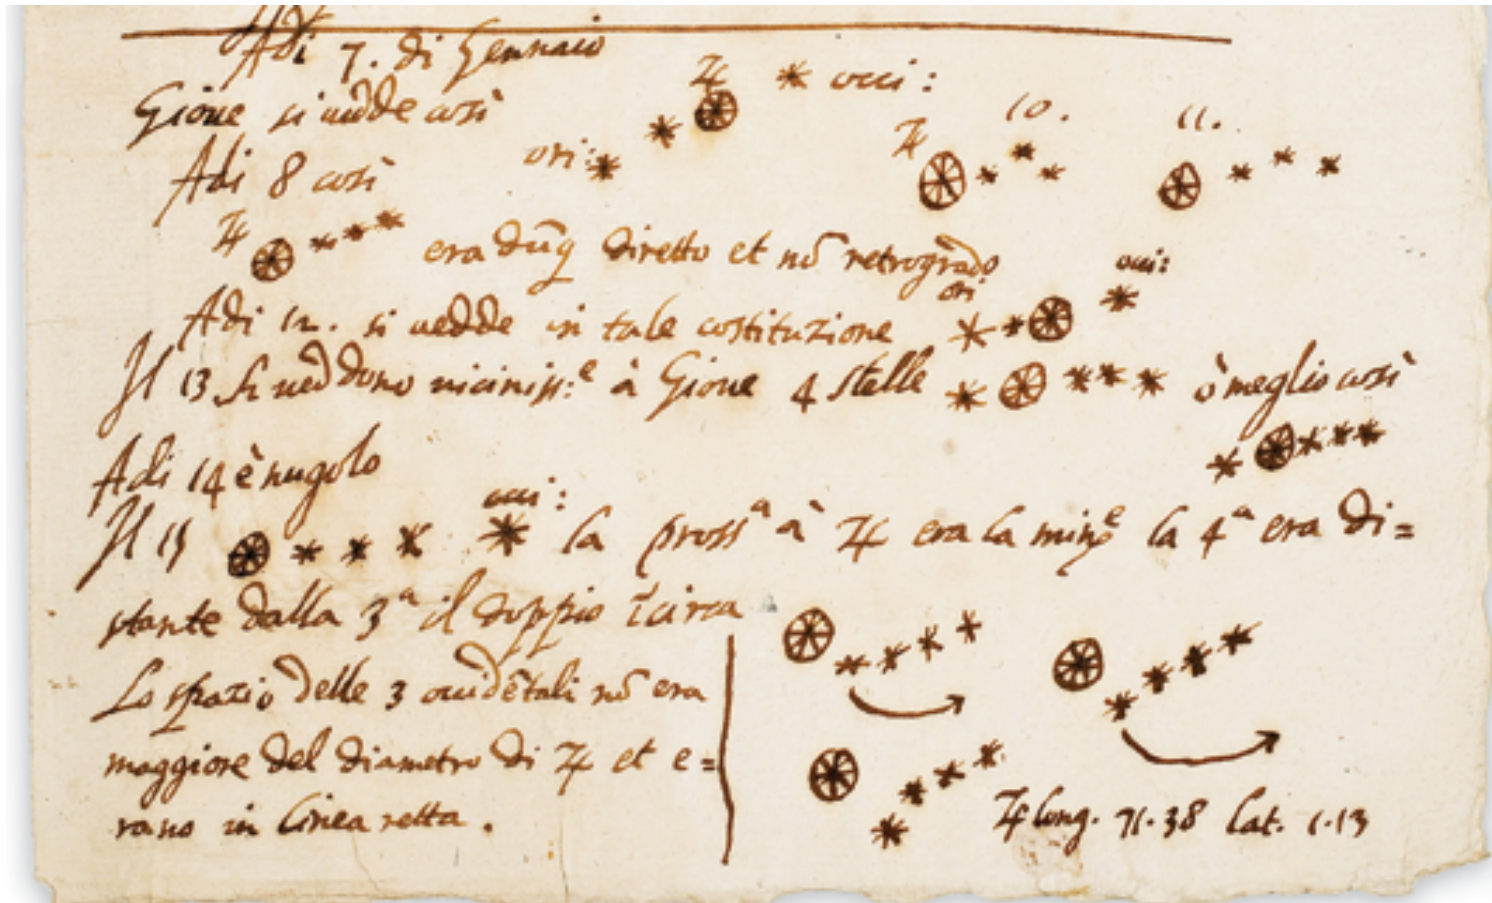 Adi 7. di Gennaio
Gioue si uedde così
♃ occi:
Adi 8 così
ori:
♃ 10. 11.
♃ era dũq diretto et nõ retrogrado
occi:
ori
Adi 12. si uedde in tale costituzione
Il 13 si ueddono uiciniss:e à Gioue 4 stelle ò meglio così
Adi 14 è nugolo
occi:
Il 15 la prossa à ♃ era la mine la 4a era di=
stante dalla 3a il doppio ĩcirca
Lo spazio delle 3 occidẽtali nõ era
maggiore del diametro di ♃ et e=
rano in linea retta.
♃ long. 71.38 lat. 1.13